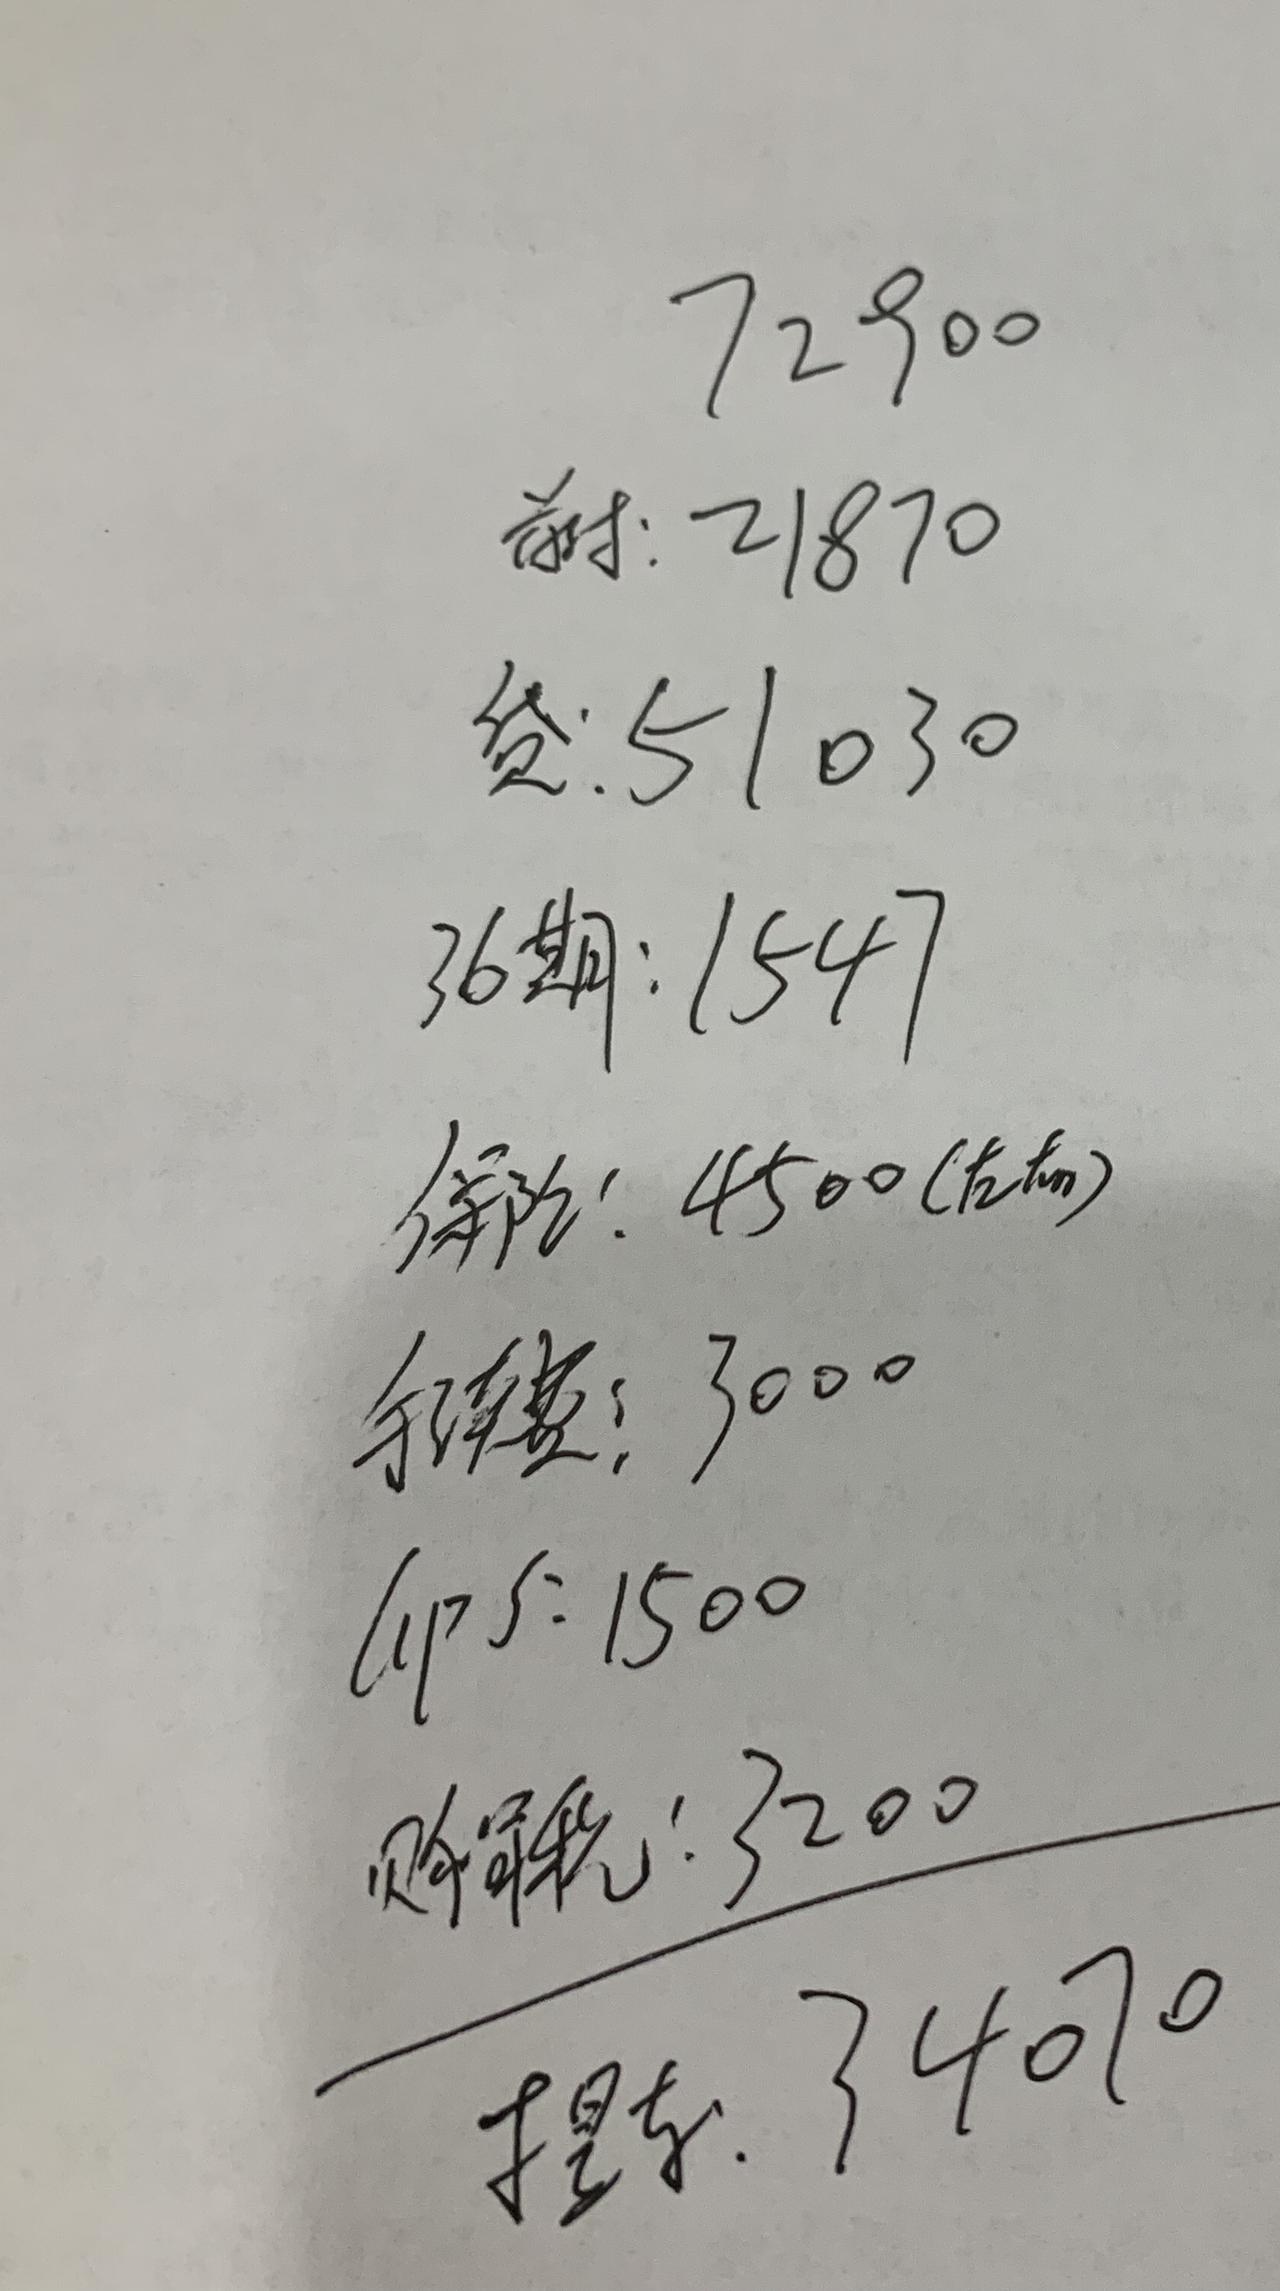 72900
首付: 21870
贷: 51030
36期: 1547
保险: 4500(左右)
手续费: 3000
GPS: 1500
购置税: 3200
提车: 34070